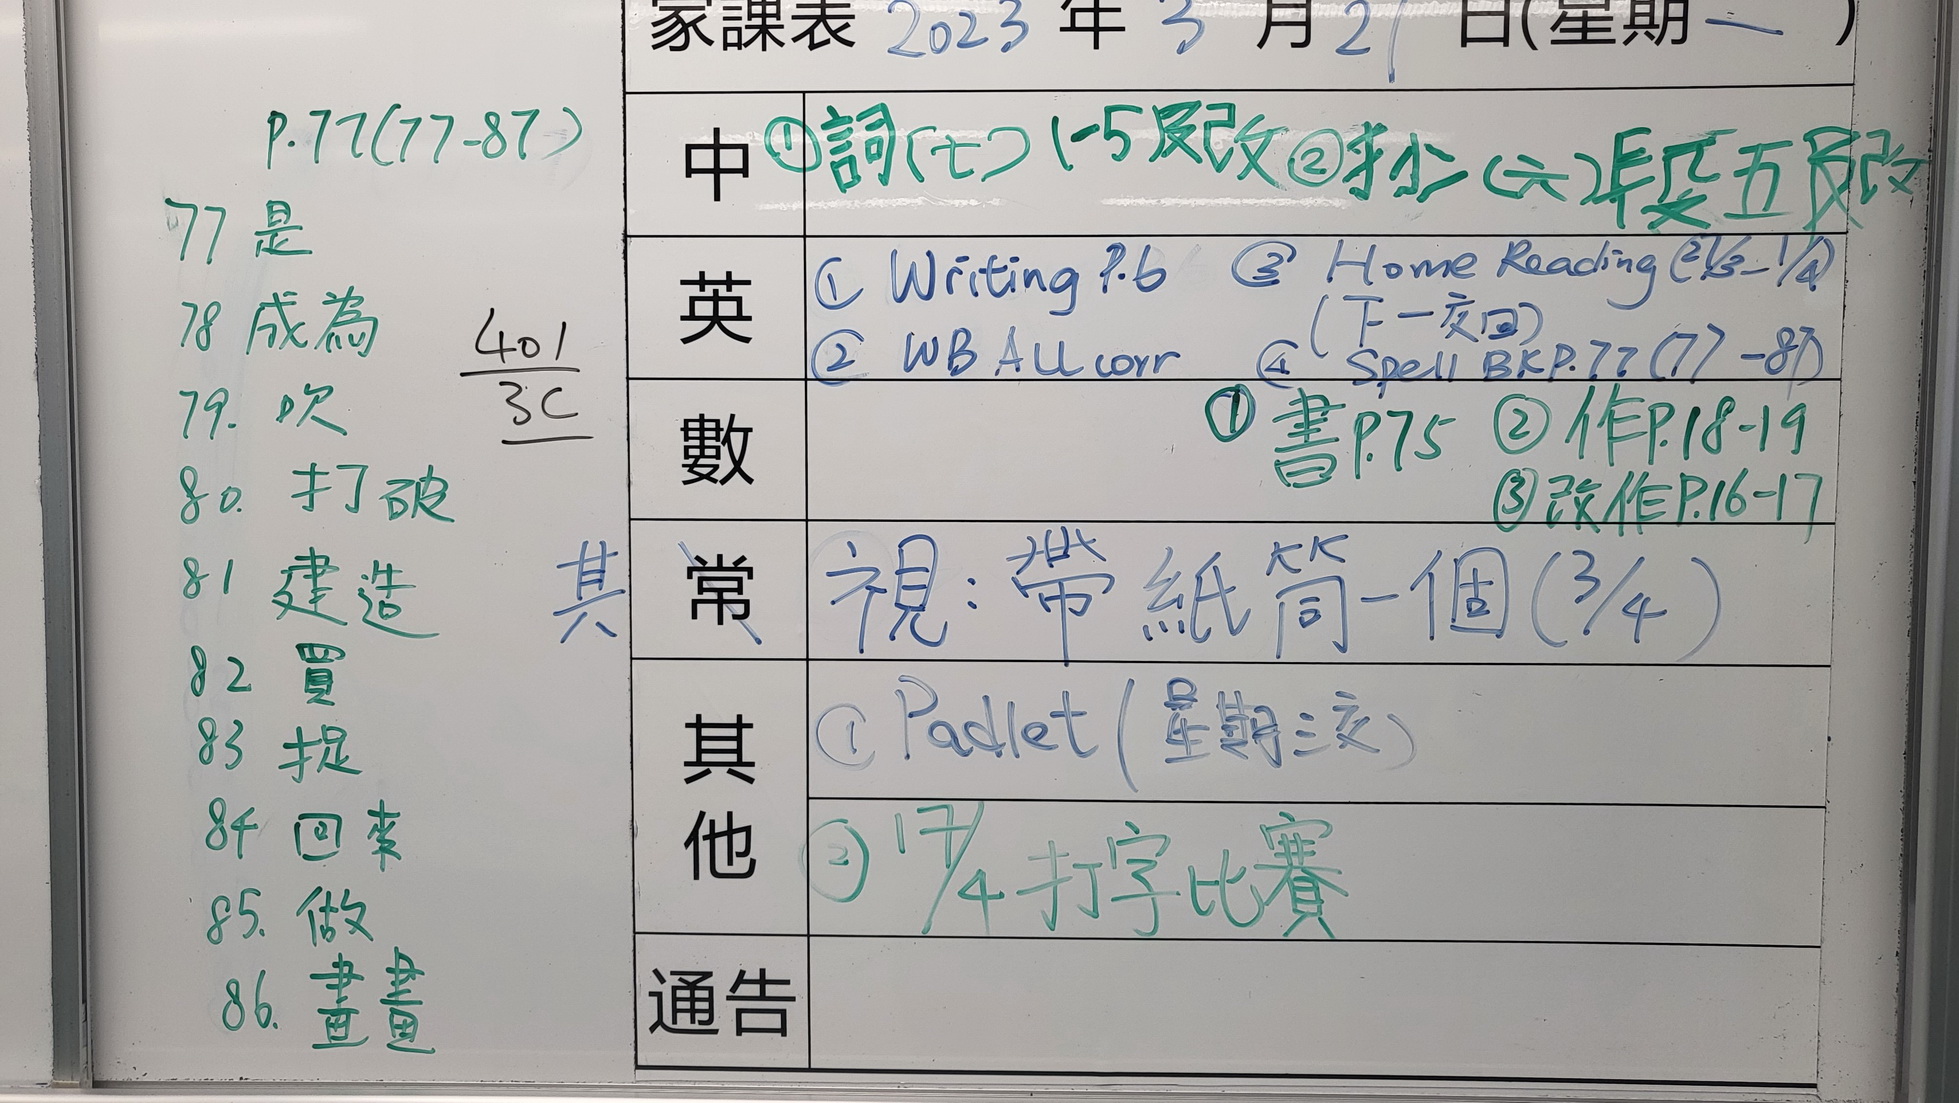 家課表 2023 年 3 月 27 日(星期一)
P.77(77-87)
77 是
78 成為
79. 吹
80. 打破
81 建造
82 買
83 捉
84 回來
85. 做
86. 畫畫
401
3C
中 ①詞(七) 1-5段改 ②抄(六)段五段改
英 ① Writing P.6 ③ Home Reading (27/3-1/4)
(下一交回)
② WB All corr ④ Spell BK P.77 (77-87)
數 ① 書P.75 ② 作P.18-19
③改作P.16-17
其 常 視:帶紙筒一個(3/4)
其他 ① Padlet (星期三交)
② 17/4 打字比賽
通告